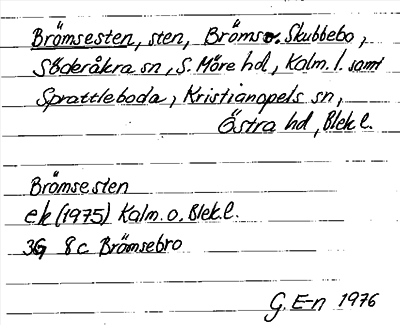 Brömsesten, sten, Bröms o. Skubbebo,
Söderåkra sn, S. Möre hd, Kalm. l. samt
Sprattleboda, Kristianopels sn,
Östra hd, Blek l.
Brömsesten
ek (1975) Kalm. o. Blek. l.
3G 8c Brömsebro
G. E-n 1976